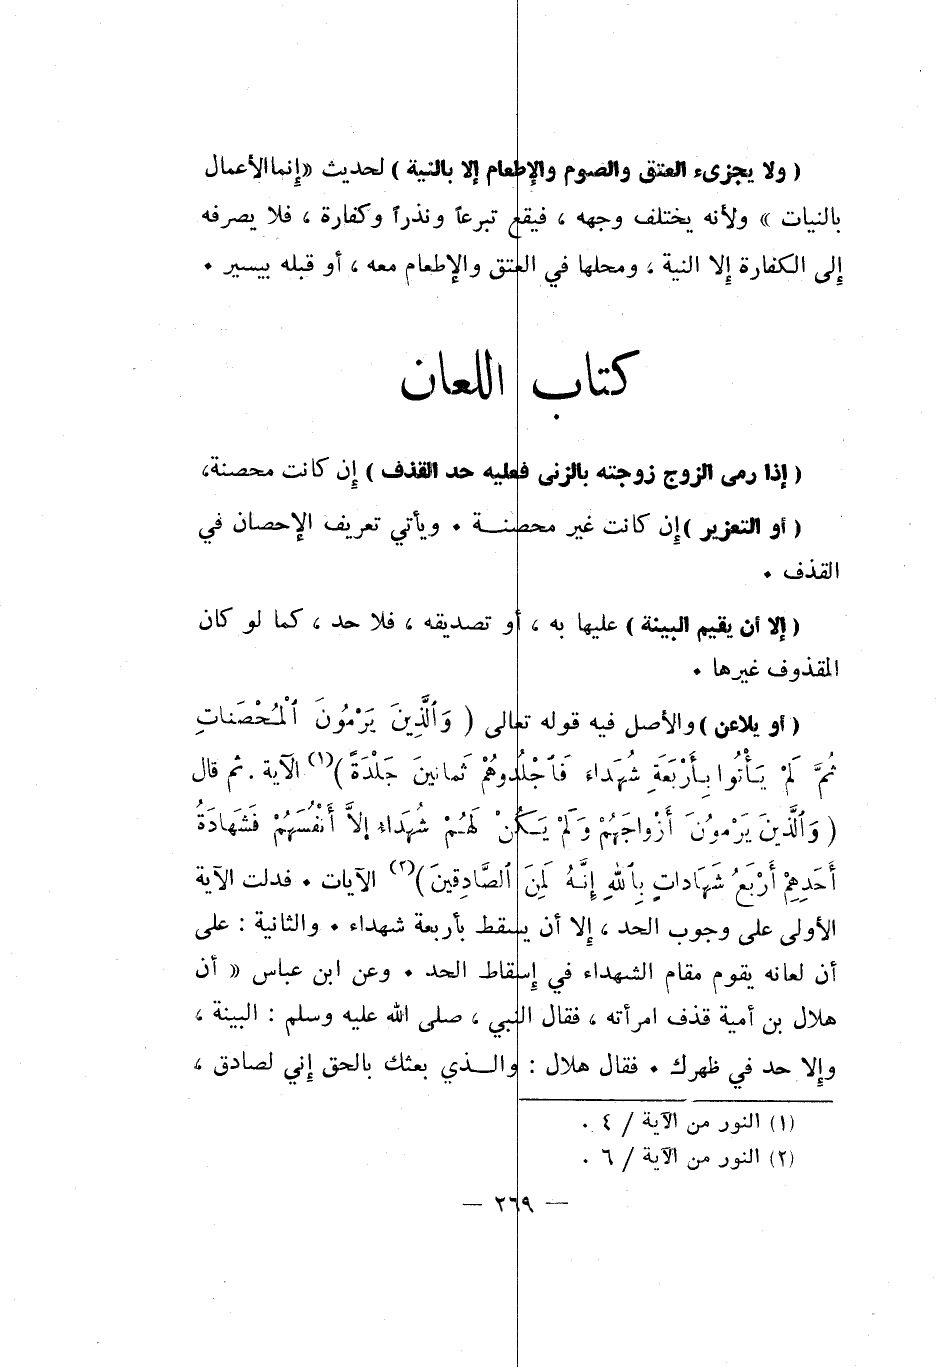 ( ولا يجزىء العتق والصوم والإطعام إلا بالنية ) لحديث «إنما الأعمال
بالنيات » ولأنه يختلف وجهه ، فيقع تبرعاً ونذراً وكفارة ، فلا يصرفه
إلى الكفارة إلا النية ، ومحلها في العتق والإطعام معه ، أو قبله بيسير .
كتاب اللعان
( إذا رمى الزوج زوجته بالزنى فعليه حد القذف ) إن كانت محصنة،
( أو التعزير ) إن كانت غير محصنة . ويأتي تعريف الإحصان في
القذف .
( إلا أن يقيم البينة ) عليها به ، أو تصديقه ، فلا حد ، كما لو كان
المقذوف غيرها .
( أو يلاعن ) والأصل فيه قوله تعالى ( وَٱلَّذِينَ يَرْمُونَ ٱلْمُحْصَناتِ
ثُمَّ لَمْ يَأْتُوا بِأَرْبَعَةِ شُهَداءَ فَٱجْلِدُوهُمْ ثَمانينَ جَلْدَةً )(١) الآية . ثم قال
( وَٱلَّذينَ يَرْمونَ أَزْواجَهُمْ وَلَمْ يَكُنْ لَهُمْ شُهَداءُ إلاَّ أَنْفُسَهُمْ فَشَهادَةُ
أَحَدِهِمْ أَرْبَعُ شَهَاداتٍ بِٱللهِ إِنَّهُ لَمِنَ ٱلصَّادِقينَ )(٢) الآيات . فدلت الآية
الأولى على وجوب الحد ، إلا أن يسقط بأربعة شهداء . والثانية : على
أن لعانه يقوم مقام الشهداء في إسقاط الحد . وعن ابن عباس « أن
هلال بن أمية قذف امرأته ، فقال النبي ، صلى الله عليه وسلم : البينة ،
وإلا حد في ظهرك . فقال هلال : والـذي بعثك بالحق إني لصادق ،
(١) النور من الآية / ٤ .
(٢) النور من الآية / ٦ .
— ٢٦٩ —